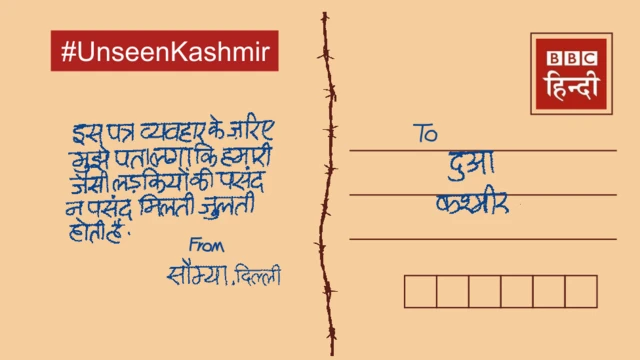 #UnseenKashmir
BBC
हिन्दी
इस पत्र व्यवहार के ज़रिए
मुझे पता लगा कि हमारी
जैसी लड़कियों की पसंद
न पसंद मिलती जुलती
होती है.
From
सौम्या, दिल्ली
To
दुआ
कश्मीर